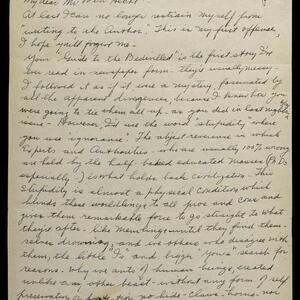 My dear Mr. Ben Hecht
At last I can no longer restrain myself from
"writing to the Author". This is my first offense,
I hope you'll forgive me.
Your "Guide to the Bedevilled" is the first story I've
ever read in newspaper form - they're usually messy -
I followed it as if it was a mystery, fascinated by
all the apparent divergences, because I knew how you
were going to tie them all up - as you did in last night's
issue - However, I'd use the word "stupidity" where
you use "ignorance". The abject reverence in which
Experts and Authorities - who are usually 100% wrong
are held by the half-baked educated Masses (Ph.D's
especially) is what holds back civilization. This
Stupidity is almost a physical condition which
blinds these worldlings to all pros and cons and
gives them remarkable force to go straight to what
they're after - like lemmings until they find them-
selves drowning, and we others who disagree with
them, the little I's and bigger You's search for
reasons. Why we ants of human beings, created
unlike any other beast - without any form of self
preservation, no hide - Claws - Horns, nor